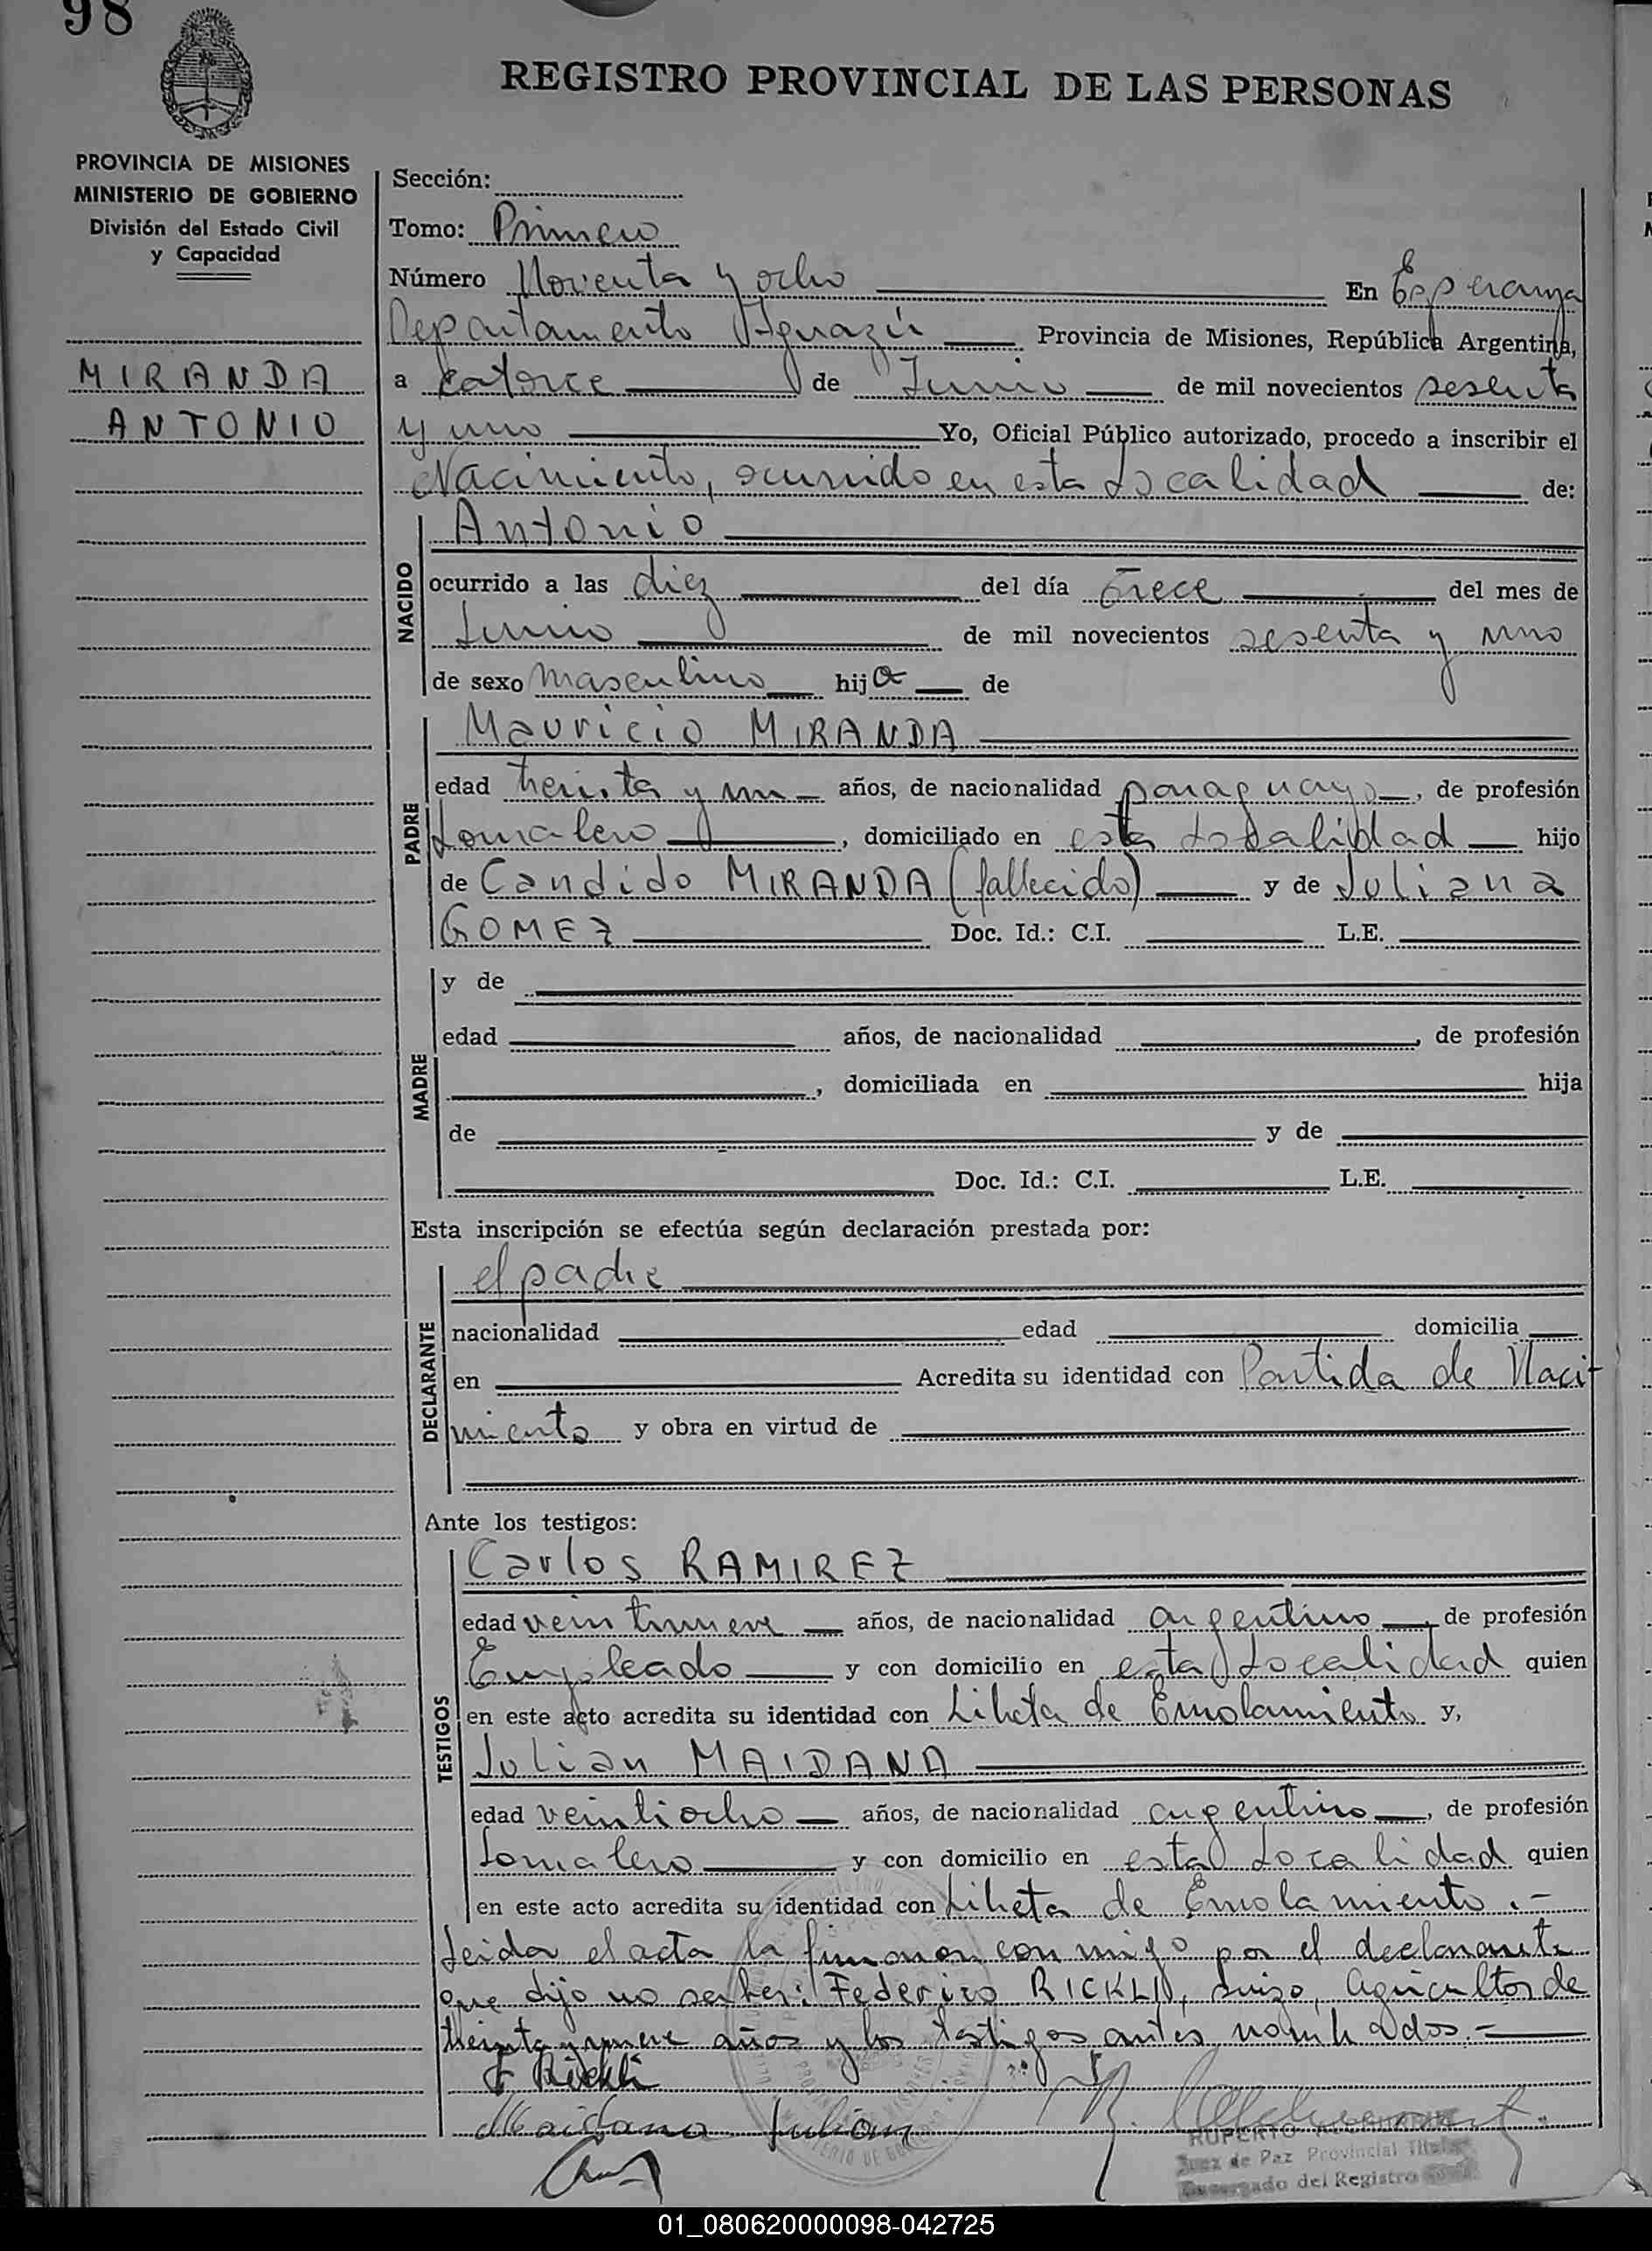 98
REGISTRO PROVINCIAL DE LAS PERSONAS
PROVINCIA DE MISIONES
MINISTERIO DE GOBIERNO
División del Estado Civil
y Capacidad
MIRANDA
ANTONIO
Sección:
Tomo: Primero
Número Noventa y ocho En Esperanza
Departamento Iguazú Provincia de Misiones, República Argentina,
a catorce de Junio de mil novecientos sesenta
y uno Yo, Oficial Público autorizado, procedo a inscribir el
Nacimiento, ocurrido en esta Localidad de:
NACIDO
Antonio
ocurrido a las diez del día trece del mes de
Junio de mil novecientos sesenta y uno
de sexo masculino hijo de
PADRE
Mauricio MIRANDA
edad treinta y un años, de nacionalidad paraguayo, de profesión
Jornalero, domiciliado en esta Localidad hijo
de Candido MIRANDA (fallecido) y de Juliana
GOMEZ Doc. Id.: C.I. L.E.
MADRE
y de
edad años, de nacionalidad , de profesión
, domiciliada en hija
de y de
Doc. Id.: C.I. L.E.
Esta inscripción se efectúa según declaración prestada por:
DECLARANTE
el padre
nacionalidad edad domicilia
en Acredita su identidad con Partida de Naci-
miento y obra en virtud de
Ante los testigos:
TESTIGOS
Carlos RAMIREZ
edad veintinueve años, de nacionalidad argentino, de profesión
Empleado y con domicilio en esta Localidad quien
en este acto acredita su identidad con Libreta de Enrolamiento y,
Julian MAIDANA
edad veintiocho años, de nacionalidad argentino, de profesión
Jornalero y con domicilio en esta Localidad quien
en este acto acredita su identidad con Libreta de Enrolamiento.-
Leida el acta la firman conmigo por el declarante
que dijo no saber: Federico RICKLI, suizo, agricultor de
treinta y nueve años y los testigos antes nombrados.-
F Rickli
Maidana Julian
RUPERTO
Juez de Paz Provincial Titular
Encargado del Registro Civil
01_080620000098-042725